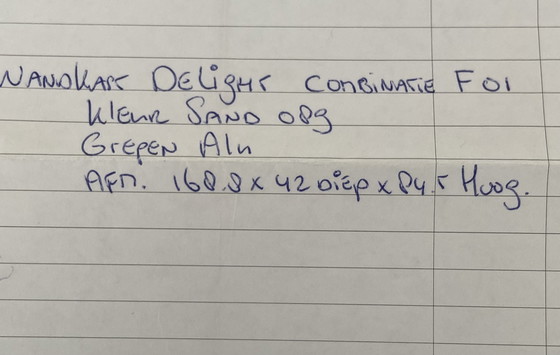 WANDKAST DELight COMBINATIE F01
Kleur SAND 089
GREPEN Alu
AFM. 168.8 x 42 DiEP x 84.5 Hoog.